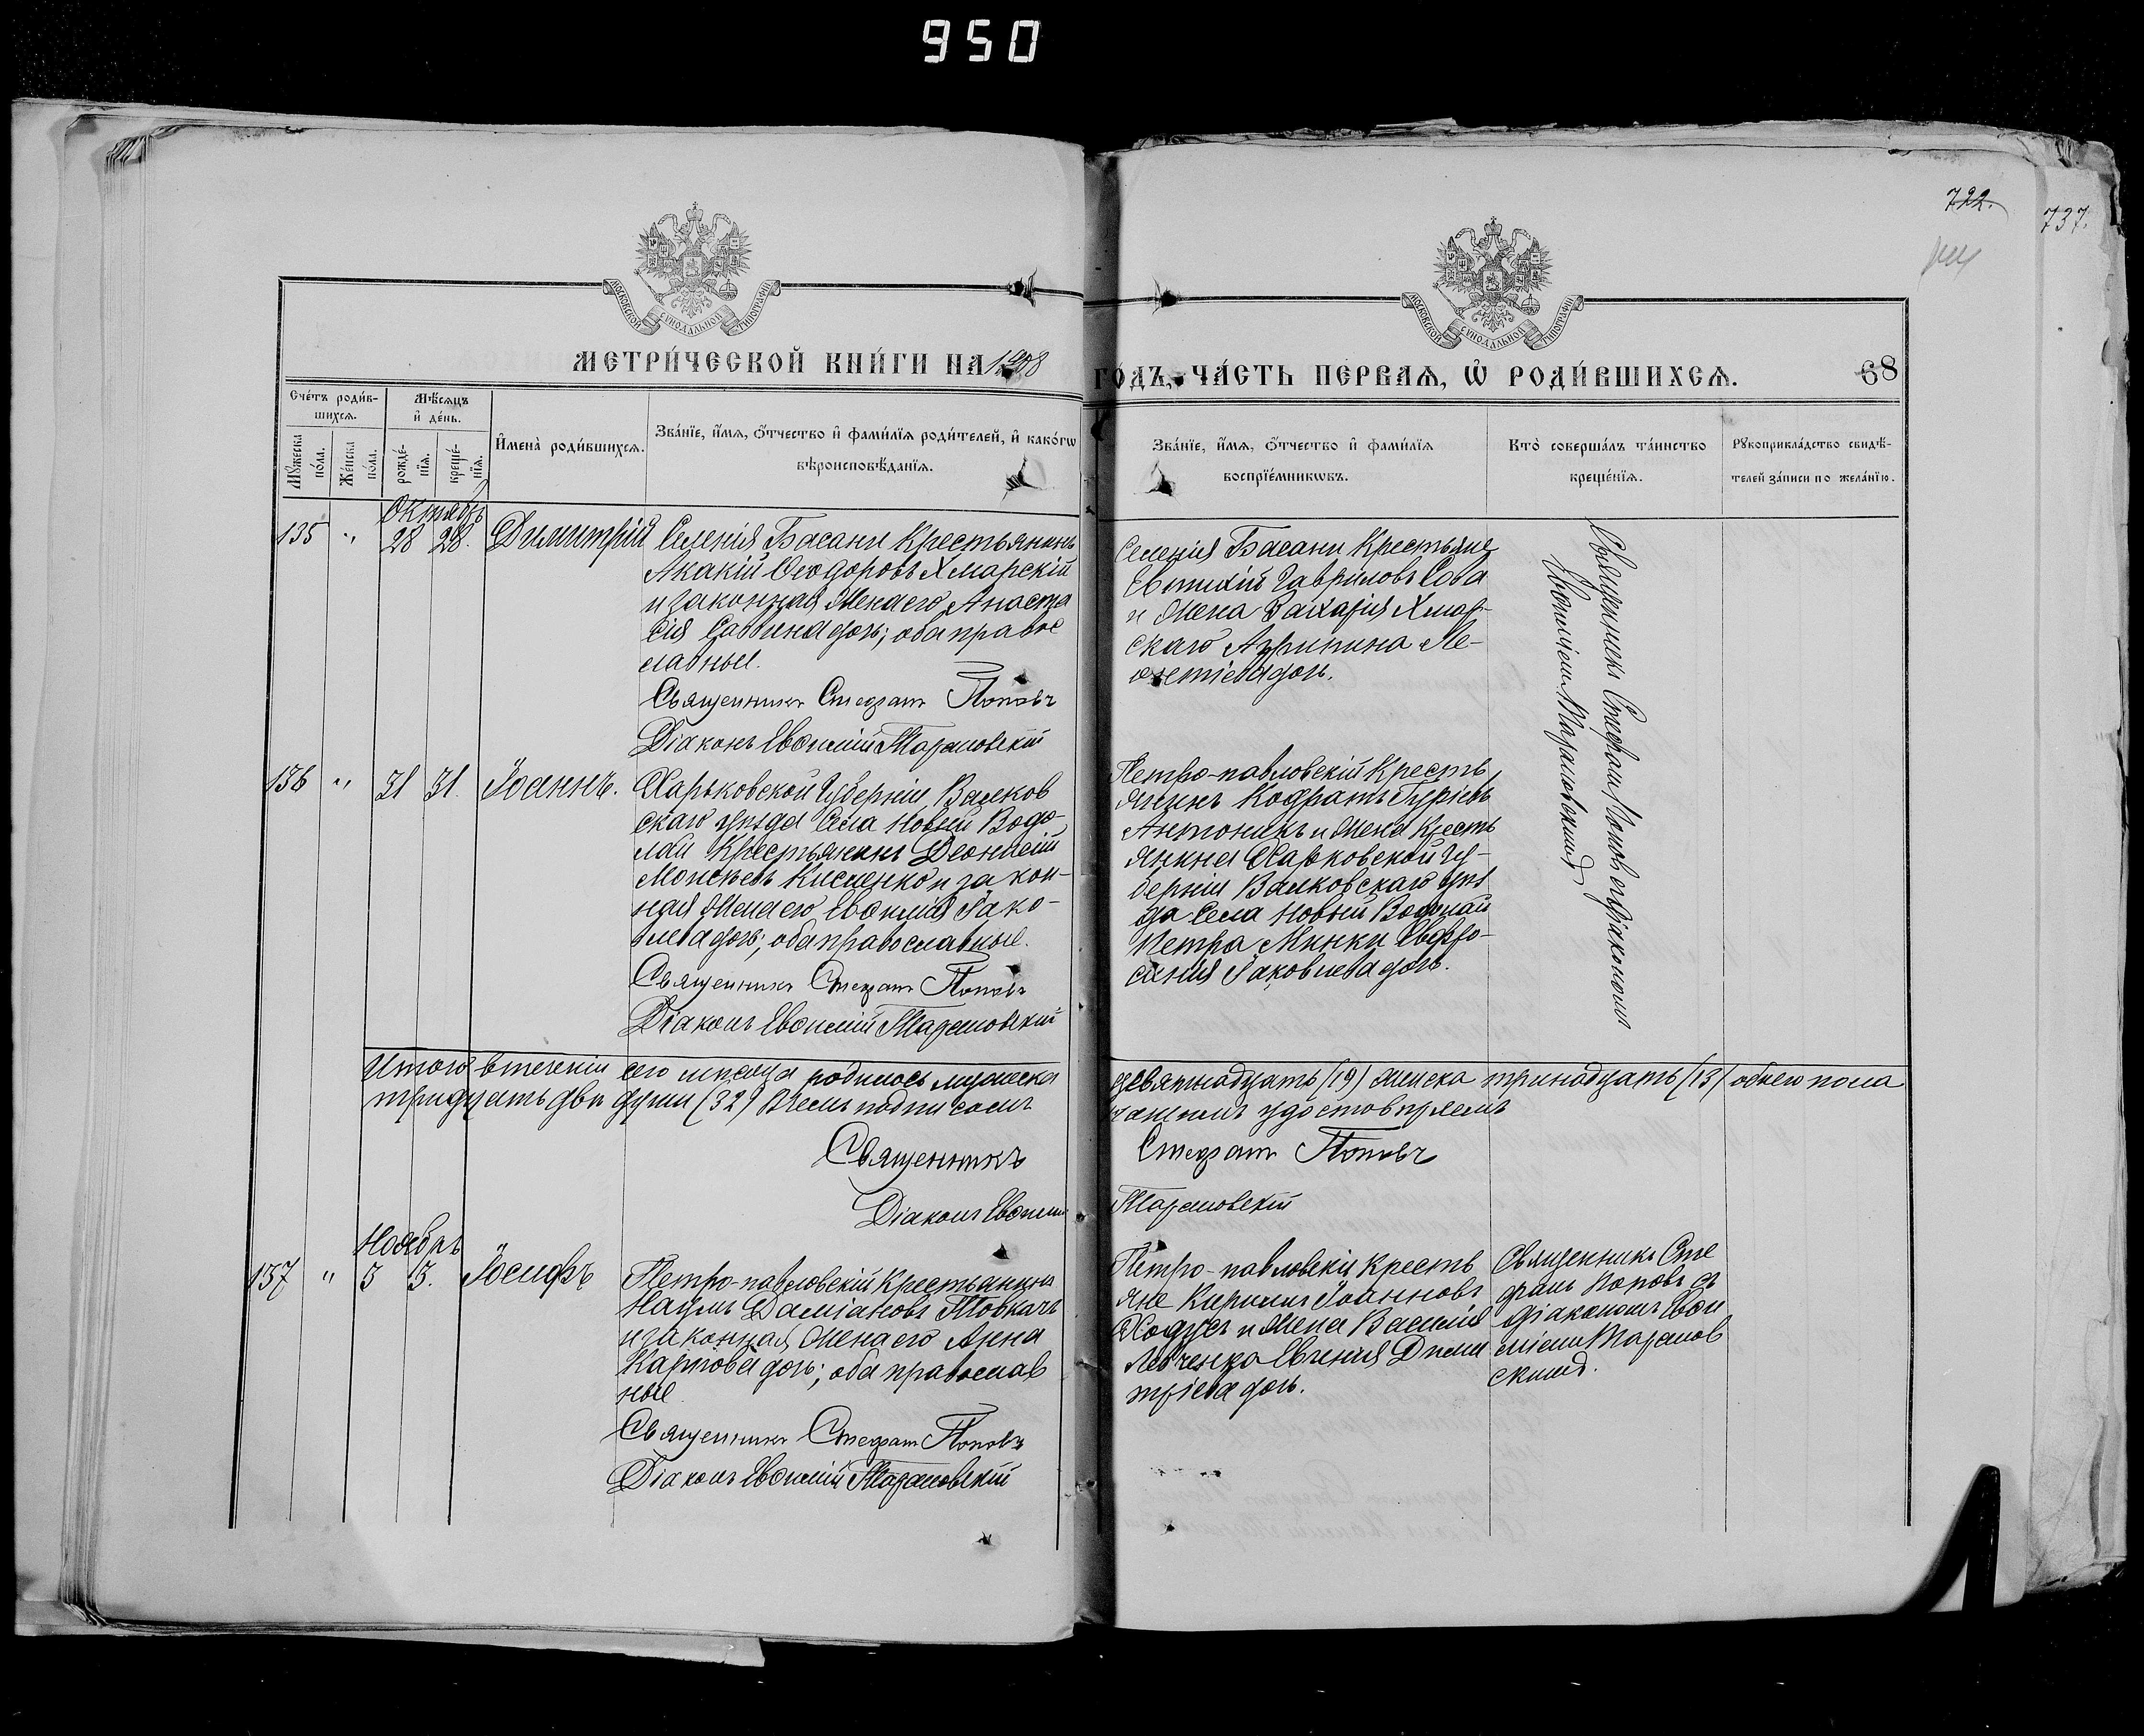 950
722.
737.
МОСКОВСКОЙ СѴНОДАЛЬНОЙ ТИПОГРАФІИ
МОСКОВСКОЙ СѴНОДАЛЬНОЙ ТИПОГРАФІИ
МЕТРИ́ЧЕСКОЙ КНИ́ГИ НА 1908
ГО́ДЪ, ЧА́СТЬ ПЕРВАѦ, Ѡ҆ РОДИ́ВШИХСѦ.
68
Сче́тъ роди́в-
шихсѧ.
Мѣ́сѧцъ
и҆ де́нь.
Мꙋ́жеска
по́ла.
Же́нска
по́ла.
рожде́-
нїѧ.
креще́-
нїѧ.
И҆мена̀ роди́вшихсѧ.
Зва́нїе, и҆́мѧ, ѻ҆́тчество и҆ фами́лїѧ роди́телей, и҆ како́гѡ
вѣроисповѣ́данїѧ.
Зва́нїе, и҆́мѧ, ѻ҆́тчество и҆ фами́лїѧ
воспрїе́мникѡвъ.
Кто̀ соверша́лъ та́инство
креще́нїѧ.
Рꙋкоприкла́дство свидѣ́-
телей за́писи по жела́нїю.
Октябрь
135 " 28 28. Димитрій
Селенія Басани Крестьянинъ
Акакій Ѳеодоровъ Хмарскій
и законная Жена его Анаста
сія Саввина дочь; оба правос
лавные.
Священникъ Стефанъ Поповъ
Діаконъ Евѳимій Тарановскій
Селенія Басани Крестьяне
Евтихій Гавриловъ Сова
и Жена Захарія Хмар-
скаго Агрипина Ле-
онтіева дочь.
Священникъ Стефанъ Поповъ съ діакономъ
Евѳиміемъ Тарановскимъ
136 " 31 31. Іоаннъ.
Харьковской Губерніи, Валков
скаго уѣзда Села Новый Водо-
лай Крестьянинъ Діонисій
Моисѣевъ Кисленко и закон-
ная Жена его Евѳимія Іако-
влева дочь; оба православные.
Священникъ Стефанъ Поповъ
Діаконъ Евѳимій Тарановскій
Петро-павловскій Кресть
янинъ Кодратъ Гуріевъ
Антоникъ и Жена Кресть
янина Харковской Гу-
берніи Валковскаго Уѣз
да Села Новый Водолай
Петра Минки Евфро-
синія Іаковлева дочь.
Итого въ теченіи сего мѣсяца родилось мужеска девятнадцать (19) женска тринадцать (13) обоего пола
тридцать двѣ души (32) Въ чемъ подписомъ нашимъ удостовѣряемъ
Священникъ Стефанъ Поповъ
Діаконъ Евѳимій Тарановскій
Ноябрь
137 " 3 3. Іосифъ
Петро-павловскій Крестьянинъ
Наумъ Даміановъ Товкачъ
и законная Жена его Анна
Карпова дочь; оба православ
ные
Священникъ Стефанъ Поповъ
Діаконъ Евѳимій Тарановскій
Петро-павловскіе Кресть
яне Кириллъ Іоанновъ
Ходусъ и Жена Василія
Левченка Евгенія Дими
тріева дочь.
Священникъ Сте
фанъ Поповъ съ
діакономъ Евѳи
міемъ Таранов
скимъ.